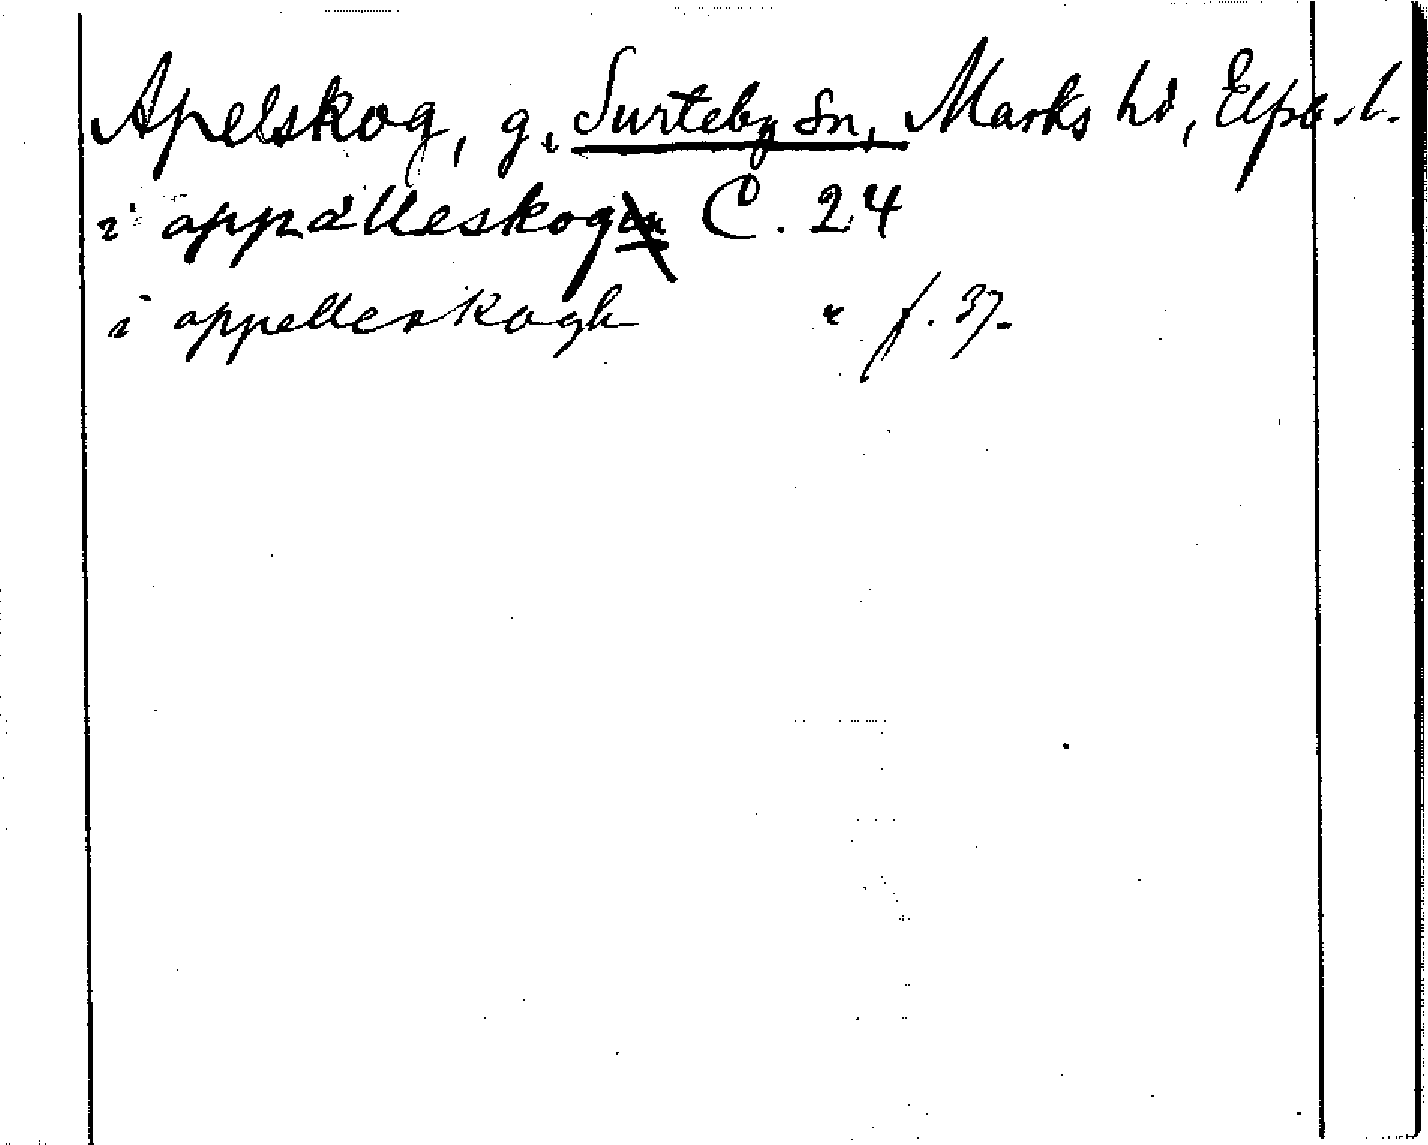 Apelskog, g. Surteby sn, Marks hd, Elfsb. l.
i appälleskog C. 24
i appelleskogh " f. 37.